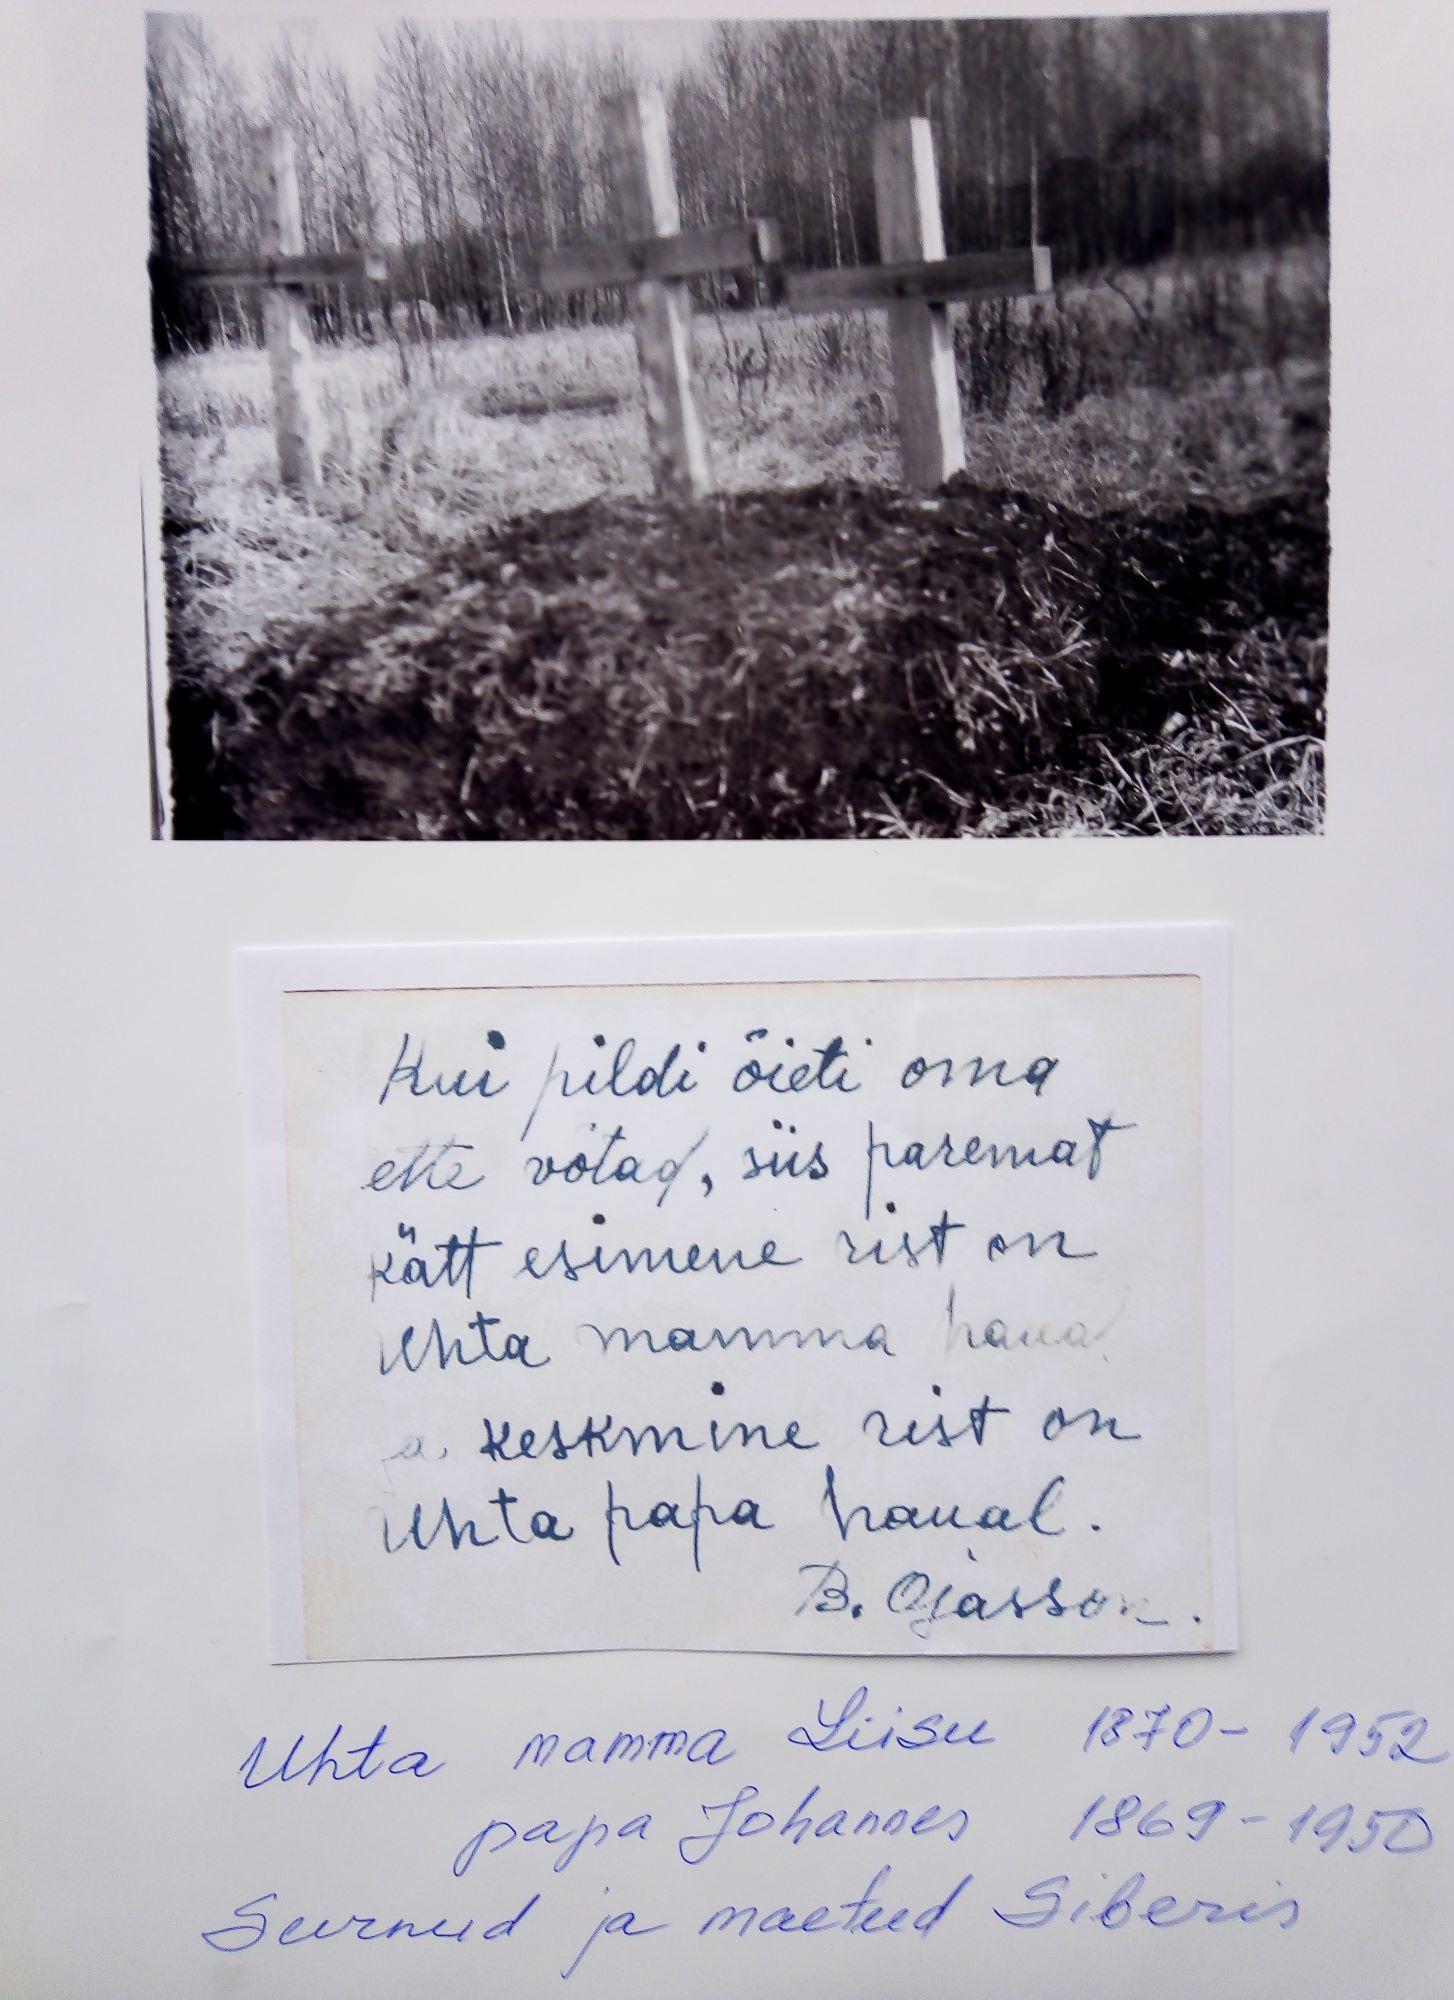 Kui pildi õieti oma
ette võtad, siis paremat
kätt esimene rist on
Uhta mamma haual
ja keskmine rist on
Uhta papa haual.
B. Ojasson.
Uhta mamma Liisu 1870-1952
papa Johannes 1869-1950
Surnud ja maetud Siberis